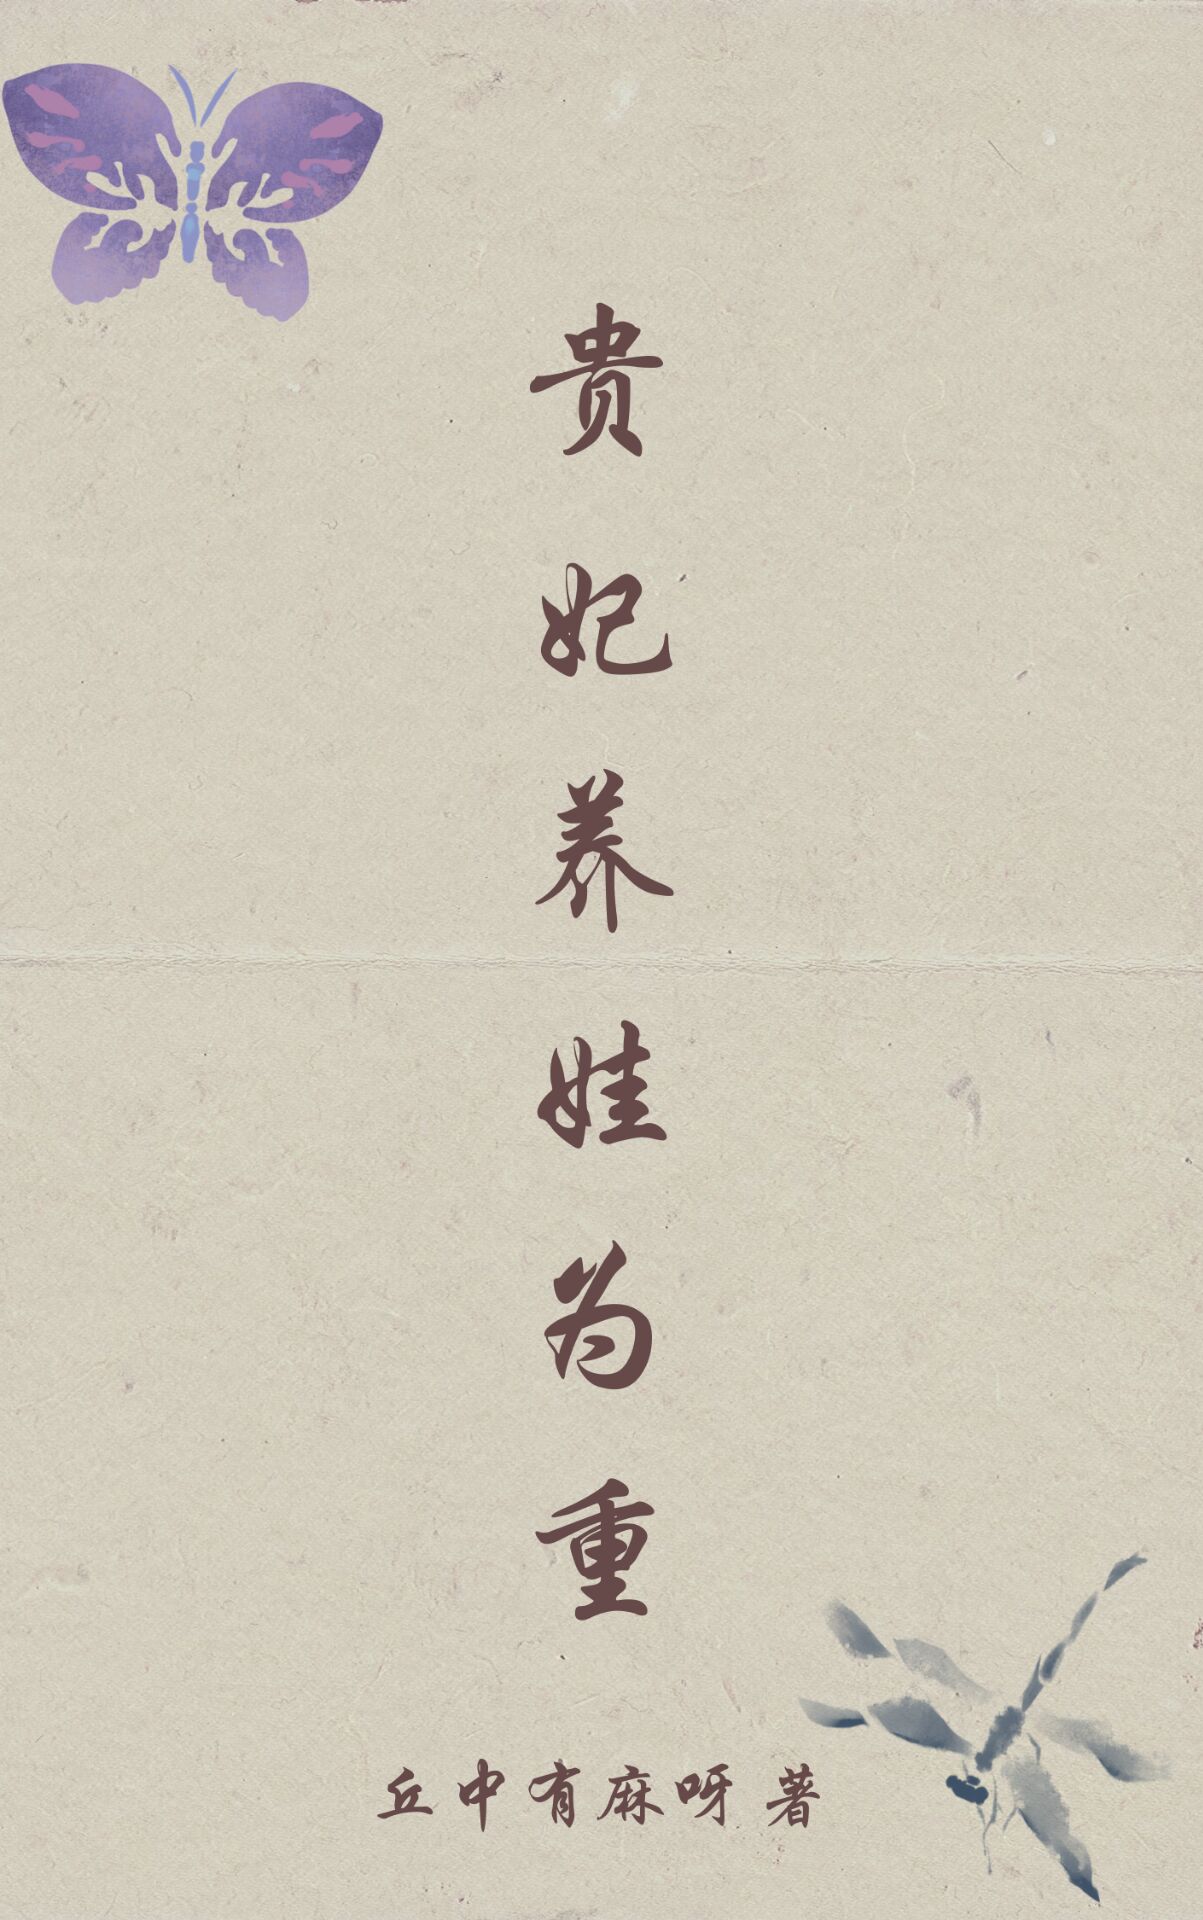 贵妃养娃为重
丘中有麻呀 著